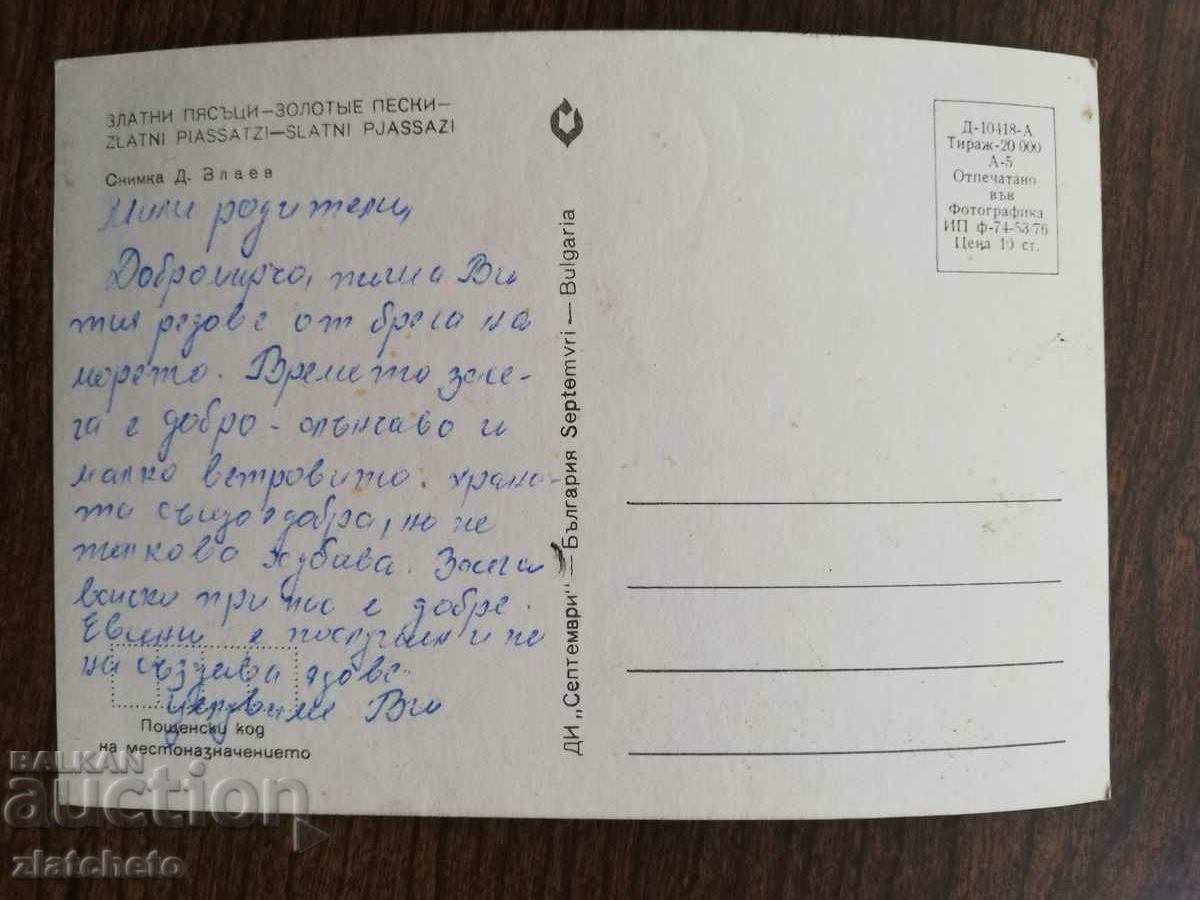 ЗЛАТНИ ПЯСЪЦИ—ЗОЛОТЫЕ ПЕСКИ—
ZLATNI PIASSATZI—SLATNI PJASSAZI
Снимка Д. Влаев
Мили родители,
пиша Ви
тия редове от брега на
морето. Времето засе-
га е добро - слънчаво и
малко ветровито. храна-
та също е добра, но не
толкова хубава. Засега
всичко при нас е добре.
Евгени е послушен и не
ни създава ядове
целувам Ви
Пощенски код
на местоназначението
ДИ „Септември" — България Septemvri — Bulgaria
Д-10418-А
Тираж-20 000
А-5
Отпечатано
във
Фотографика
ИП ф-74-53/76
Цена 10 ст.
BALKAN
auction
zlatcheto